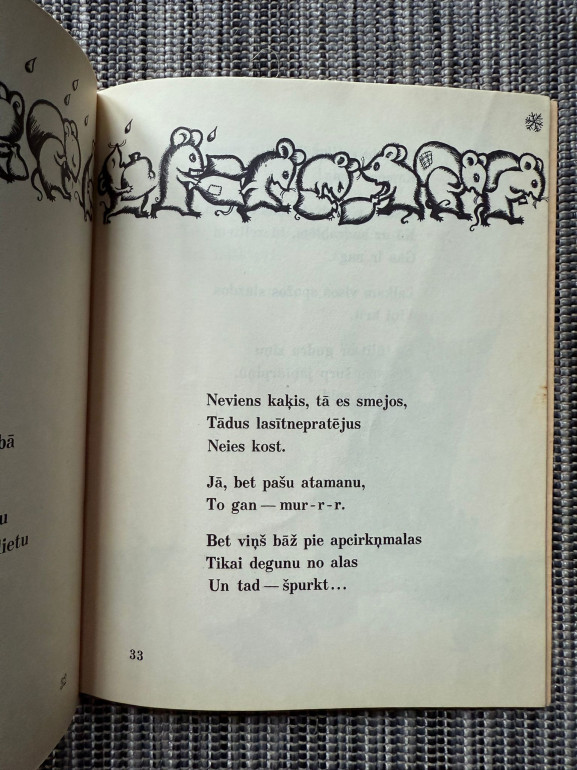 bā
u
lietu
Neviens kaķis, tā es smejos,
Tādus lasītnepratējus
Neies kost.
Jā, bet pašu atamanu,
To gan — mur-r-r.
Bet viņš bāž pie apcirkņmalas
Tikai degunu no alas
Un tad — špurkt...
33